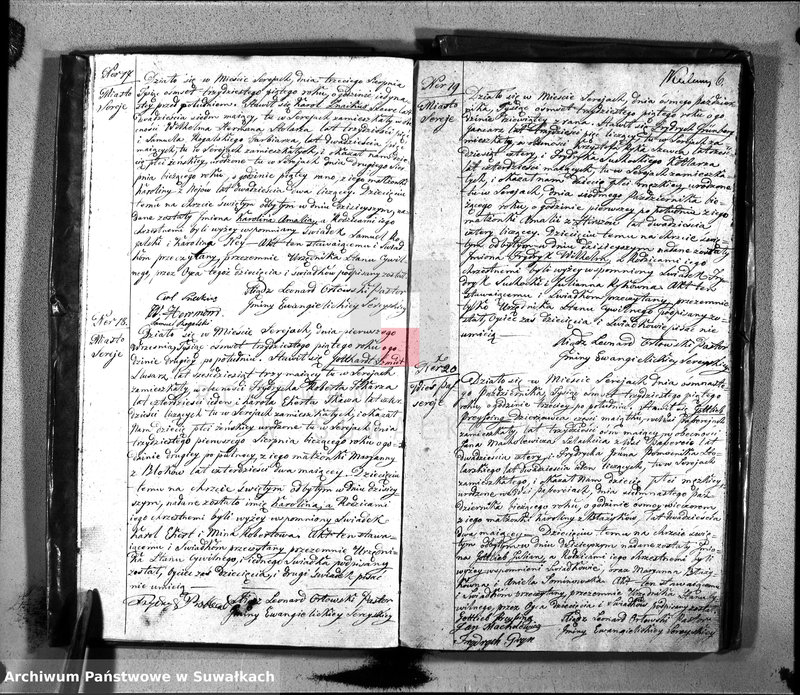 Ner 17
Miasto
Sereje
Działo się w Mieście Serejach, dnia trzeciego Sierpnia
Tysiąc osmset trzydziestego piątego roku, o godzinie
przed południem. Stawił się Karol
dwadzieścia siedm mający, tu w Serejach zamieszkały w obec-
ności Wilhelma Hermana Stolarza, lat trzydzieści
i Samuela Rogalskiego Farbiarza, lat dwadzieścia
mających, tu w Serejach zamieszkałych, i okazał nam dziecię
płci żeńskiej, urodzone tu w Serejach dnia drugiego Sier-
pnia bieżącego roku, o godzinie piątej rano, z jego małżonki
Karoliny z Nejów lat dwadzieścia dwa liczącej. Dziecięciu
temu na chrzcie świętym odbytym w dniu dzisiejszym, na-
dane zostały imiona Karolina Amalia, a Rodzicami jego
chrzestnemi byli wyżej wspomniany świadek Samuel Ro-
galski i Karolina Ney. Akt ten stawającemu i świad-
kom przeczytany, przezemnie Urzędnika Stanu Cywil-
nego, przez Ojca tegoż dziecięcia i świadków podpisany został
Carl
W. Hermann
Samuel Rogalski
Xiądz Leonard Orłowski Pastor
Gminy Ewangielickiej Serejskiej
Ner 18.
Miasto
Sereje
Działo się w Mieście Serejach, dnia pierwszego
Września, Tysiąc osmset trzydziestego piątego roku, o go-
dzinie drugiej po południu. Stawił się Gotthard
Ślusarz, lat sześćdziesiąt trzy mający tu w Serejach
zamieszkały, w obecności Frydrycha Roberta
lat czterdzieści jeden i Karola Ekerta Szewca lat
dzieści liczących tu w Serejach zamieszkałych, i okazał
Nam dziecię płci żeńskiej urodzone tu w Serejach dnia
trzydziestego pierwszego Sierpnia bieżącego roku o go-
dzinie drugiej po północy, z jego małżonki Maryanny
z Bloków lat czterdzieści dwa mającej. Dziecięciu
temu na chrzcie świętym odbytym w dniu dzisiej-
szym, nadane zostało imię Karolina, a Rodzicami
jego chrzestnemi byli wyżej wspomniony świadek
Karol Ekert i Mina Robertowa. Akt ten stawa-
jącemu i świadkom przeczytany, przezemnie Urzędni-
ka Stanu Cywilnego, i jednego świadka podpisany
został, Ojciec zaś dziecięcia, i drugi świadek pisać
nie umieją
Xiądz Leonard Orłowski Pastor
Gminy Ewangielickiej Serejskiej
6.
Ner 19
Miasto
Sereje
Działo się w Mieście Serejach, dnia osmego Paździer-
nika, Tysiąc osmset trzydziestego piątego roku, o go-
dzinie dziewiątej z rana. Stawił się Frydrych
lat trzydzieści pięć liczący, tu w Serejach za-
mieszkały, w obecności Krzysztofa
dzieści cztery, i Frydrycha Suckiego Kotlarza
lat czterdzieści mających, tu w Serejach zamieszka-
łych, i okazał nam dziecię płci męzkiej, urodzone
tu w Serejach, dnia siodmego Października bie-
żącego roku, o godzinie pierwszej po południu z jego
małżonki Amalii z lat dwadzieścia
cztery liczącej. Dziecięciu temu na chrzcie świę-
tym odbytym w dniu dzisiejszym nadane zostały
Imiona Frydryk Wilhelm, a Rodzicami jego
chrzestnemi byli wyżej wspomniony świadek Fry-
dryk Sucki i Julianna Akt ten
Stawającemu i świadkom przeczytany, przezemnie
tylko Urzędnika Stanu Cywilnego podpisany zo-
stał, Ojciec zaś dziecięcia i świadkowie pisać nie
umieją
Xiądz Leonard Orłowski Pastor
Gminy Ewangielickiej Serejskiej
Ner 20
Sereje
Działo się w Mieście Serejach dnia osmnaste-
go Października, Tysiąc osmset trzydziestego piątego
roku, o godzinie trzeciej po południu. Stawił się Gottlieb
zamieszkały, lat trzydzieści ośm mający, w obecności
Jana Machulewicza
dwadzieścia cztery, i Frydrycha
lat dwadzieścia jeden liczących, tu w Serejach
zamieszkałego, i okazał Nam dziecię płci męzkiej,
urodzone dnia siedmnastego Paź-
dziernika bieżącego roku, o godzinie osmej wieczorem
z jego małżonki Karoliny z lat dwadzieścia
dwa mającej. Dziecięciu temu na chrzcie świę-
tym odbytym w dniu dzisiejszym nadane zostały Imio-
na Gottlieb Julian, a Rodzicami jego chrzestnemi byli
wyżej wspomnieni świadkowie, oraz Maryanna
i Aniela Akt ten stawającemu
i świadkom przeczytany, przezemnie Urzędnika Stanu Cy-
wilnego, przez Ojca dziecięcia i świadków podpisany został
Gottlieb
Jan Machulewicz
Frydrych
Xiądz Leonard Orłowski Pastor
Gminy Ewangielickiej Serejskiej
Archiwum Państwowe w Suwałkach